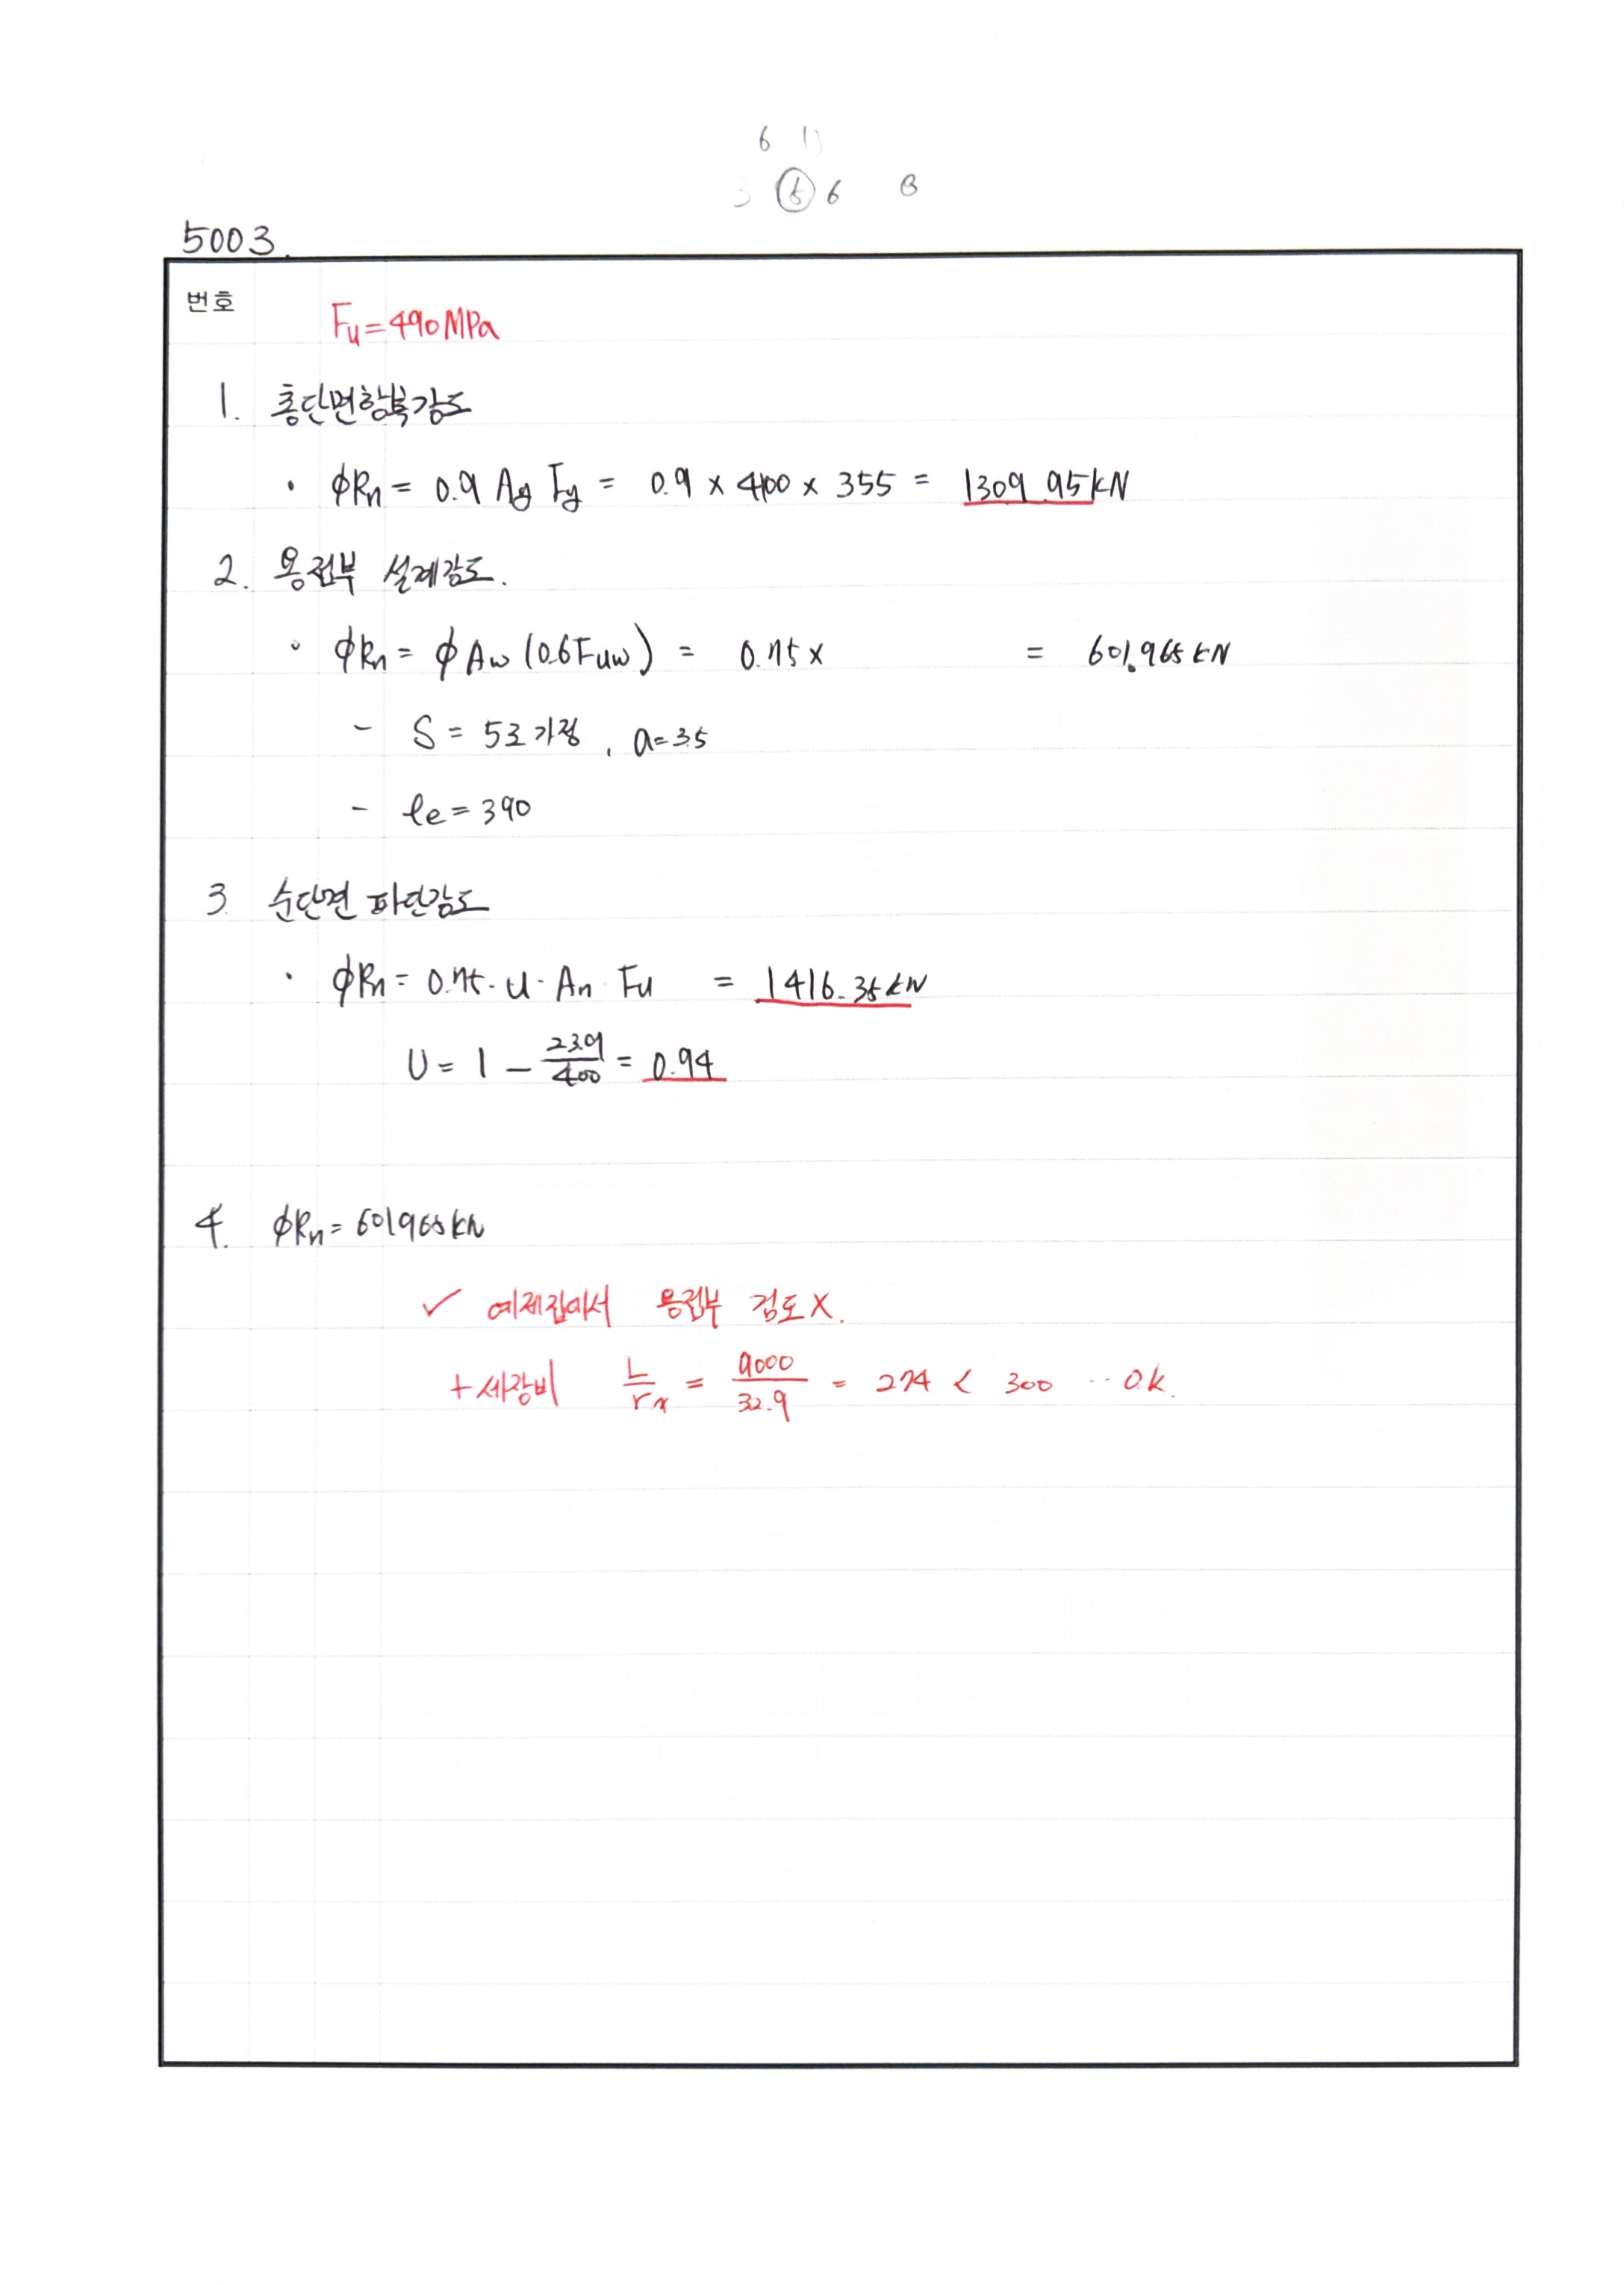 6
6 8
5003.
번호
Fu=490MPa
1. 총단면항복강도
· ϕRn = 0.9 Ag Fy = 0.9 × 4100 × 355 = 1309.95kN
2. 용접부 설계강도.
· ϕRn = ϕ Aw (0.6Fuw) = 0.75 × = 601.965kN
- S = 5로 가정, a=3.5
- le = 390
3. 순단면 파단강도
· ϕRn = 0.75 · U · An Fu = 1416.35kN
U = 1 - 23.9/400 = 0.94
4. ϕRn = 601.965kN
✓ 예제집에서 용접부 검토X.
+세장비 L/rx = 9000/32.9 = 274 < 300 ··· O.k.